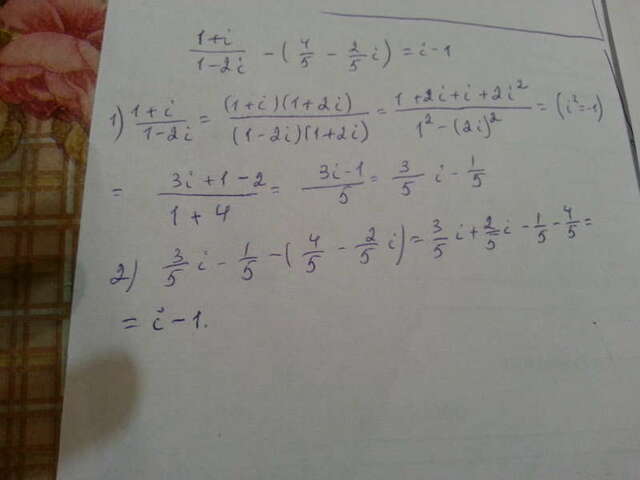 (1+i)/(1-2i) - (4/5 - 2/5 i) = i-1
1) (1+i)/(1-2i) = ((1+i)(1+2i))/((1-2i)(1+2i)) = (1+2i+i+2i²)/(1²-(2i)²) = (i²=-1)
= (3i+1-2)/(1+4) = (3i-1)/5 = 3/5 i - 1/5
2) 3/5 i - 1/5 - (4/5 - 2/5 i) = 3/5 i + 2/5 i - 1/5 - 4/5 =
= i-1.